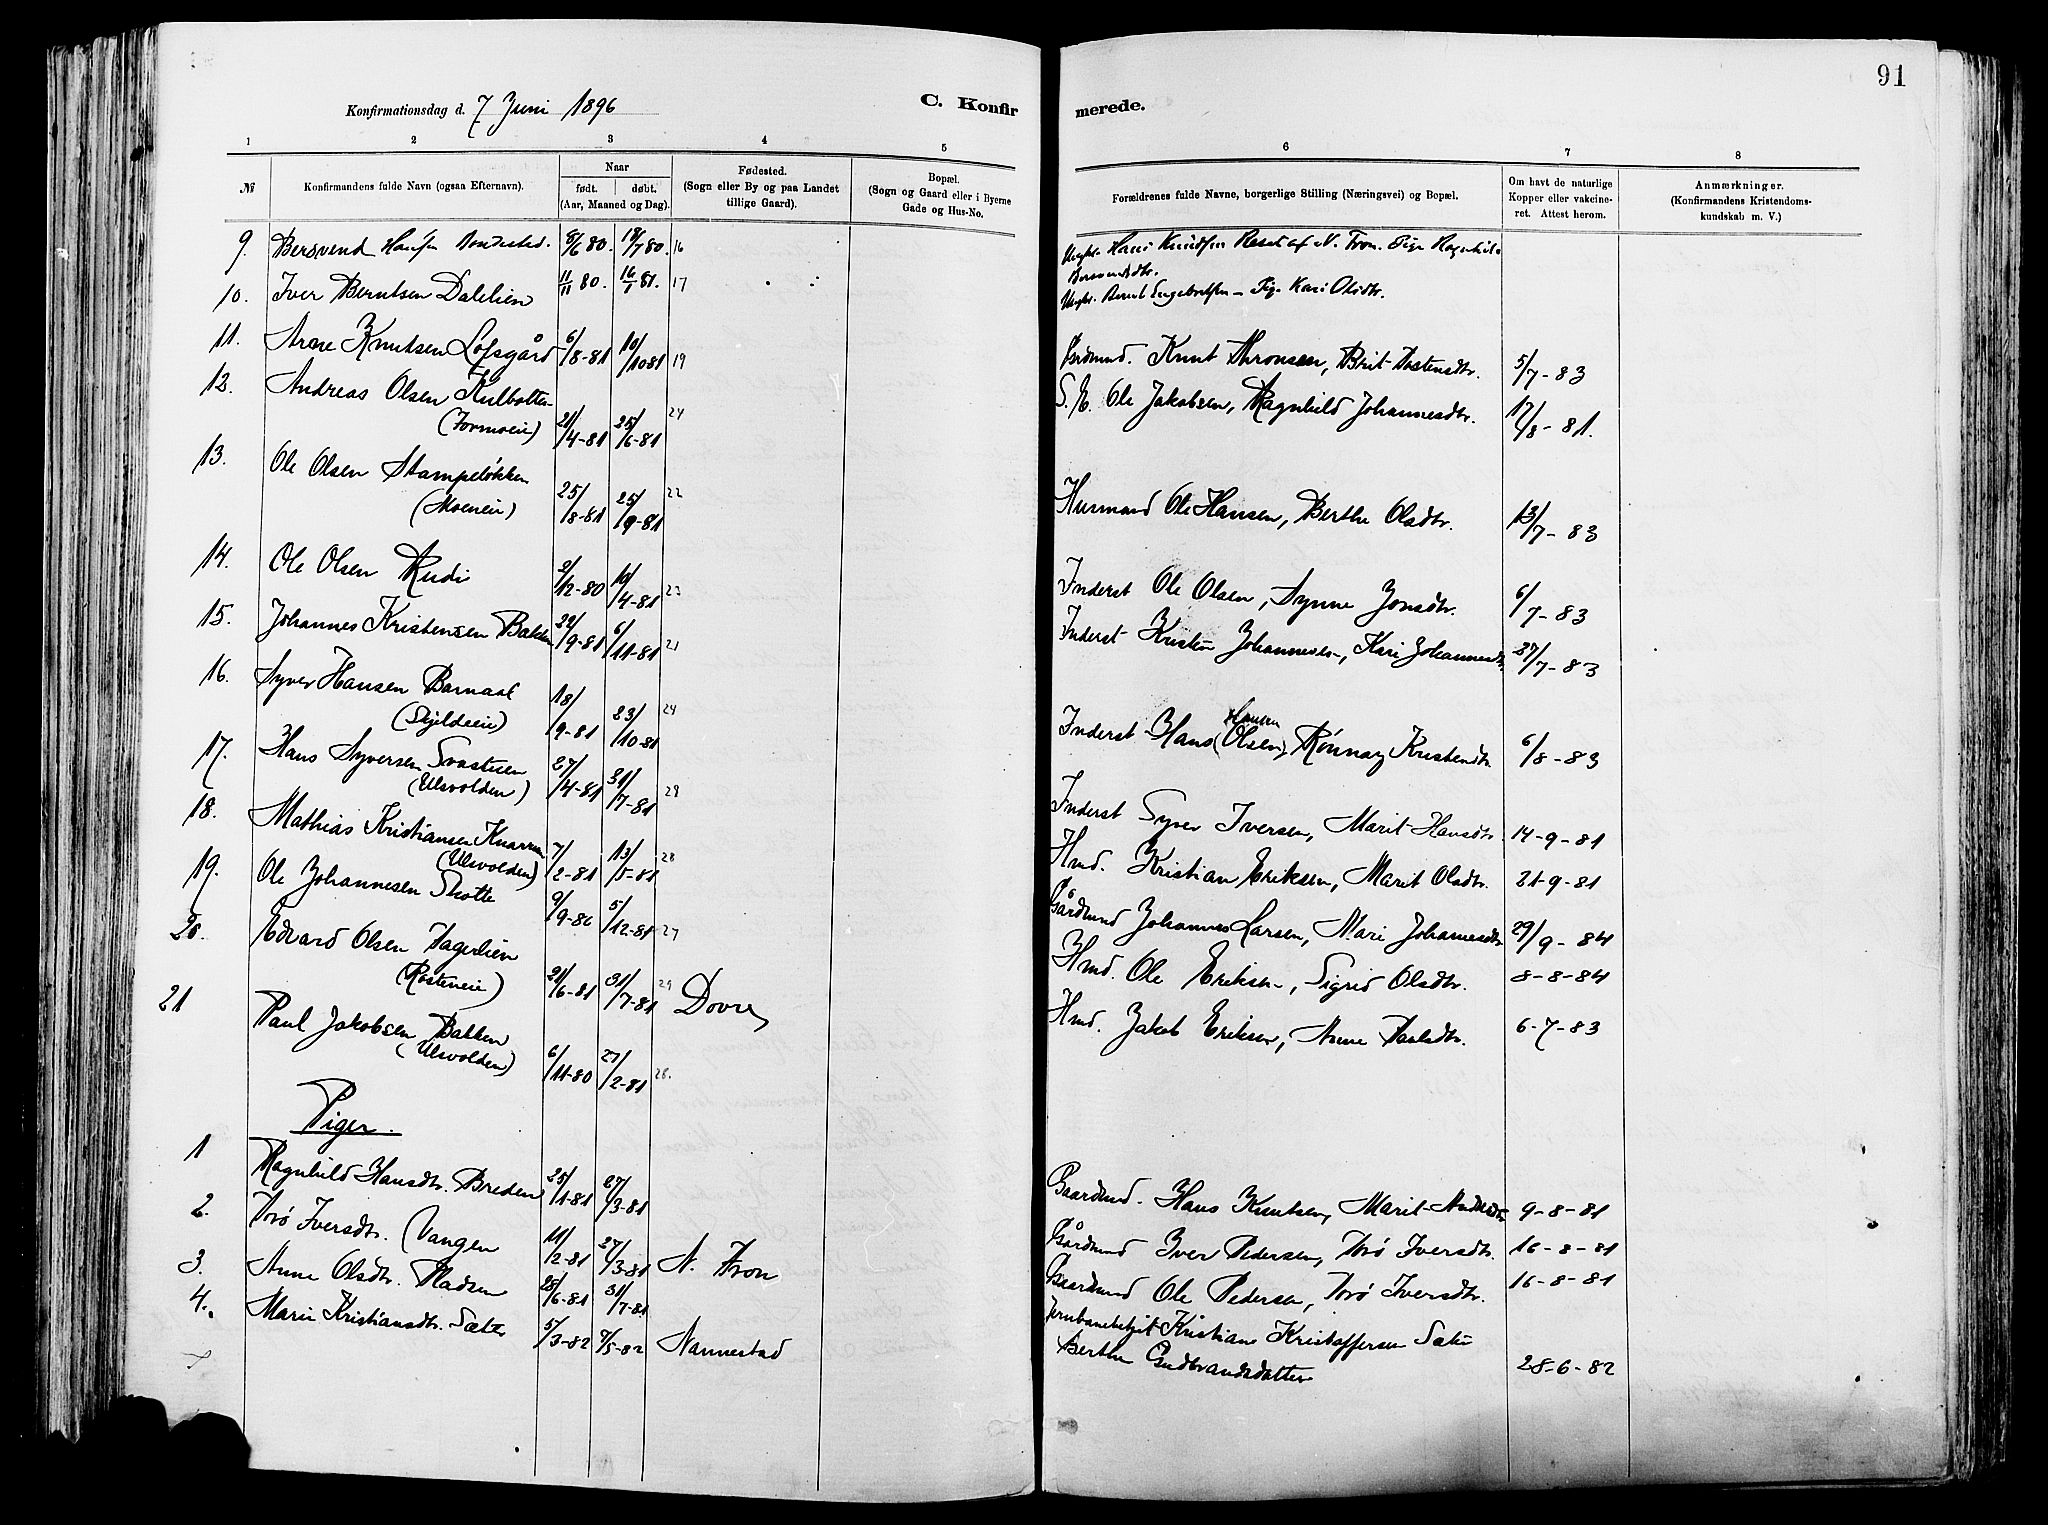 91
Konfirmationsdag d. 7 Juni 1896
C. Konfirmerede.
1 2 3 4 5 6 7 8
№
Konfirmandens fulde Navn (ogsaa Efternavn).
Naar
født. døbt.
(Aar, Maaned og Dag).
Fødested.
(Sogn eller By og paa Landet
tillige Gaard).
Bopæl.
(Sogn og Gaard eller i Byerne
Gade og Hus-No.
Forældrenes fulde Navne, borgerlige Stilling (Næringsvei) og Bopæl.
Om havt de naturlige
Kopper eller vakcine-
ret. Attest herom.
Anmærkninger.
(Konfirmandens Kristendoms-
kundskab m. V.)
9. Bersvend Hansen 8/6 80. 18/7 80. 16 Ungk. Hans Knudsen af N. Fron. Pige Ragnhild
Bersvendsdtr.
10. Iver Berntsen Dalelien 11/11 80. 16/1 81. 17 Ungk. Bernt Engebretsen - Pig. Kari Olsdtr.
11. Arne Knutsen Lofsgård 6/8-81 10/10 81 19 Grdmand. Knut Thronsen, Brit Jostensdtr. 5/7-83
12. Andreas Olsen Kulbotten
(Formoeie) 21/4-81 25/6-81 24 S. E. Ole Jakobsen, Ragnhild Johannesdtr. 17/8-81.
13. Ole Olsen Stampeløkken
(Moeneie) 25/8-81 25/9-81 22 Husmand Ole Hansen, Berthe Olsdtr. 13/7-83
14. Ole Olsen Rudi 2/12-80 10/4-81 23 Inderst Ole Olsen, Synne Jonsdtr. 6/7-83
15. Johannes Kristensen Bakken 29/9-81 6/11-81 21 Inderst Kristen Johannesen, Kari Johannesdtr. 27/7-83
16. Syver Hansen Barnaal
(Skjeldeeie) 18/9-81 23/10-81 24 Inderst Hans (Olsen) Hansen, Rønnaug Kristendtr. 6/8-83
17. Hans Syversen Svastuen
(Ulsvolden) 27/4-81 31/7-81 28 Inderst Syver Iversen, Marit Hansdtr. 14-9-81
18. Mathias Kristiansen Knarren
(Ulsvolden) 7/2-81 13/5-81 28 Hmd. Kristian Eriksen, Marit Olsdtr. 21-9-81
19. Ole Johannesen Skotte 9/9-86 5/12-81 27 Gårdmd Johannes Larsen, Mari Johannesdtr 29/9-84
20. Edvard Olsen Hagerlien
(Rosteneie) 21/6-81 31/7-81 29 Dovre Hmd. Ole Eriksen, Sigrid Olsdtr. 8-8-84
21 Paul Jakobsen Bakken
(Ulsvolden) 6/11-80 27/2-81 28. Hmd. Jakob Eriksen, Anne Paulsdtr. 6-7-83
Piger.
1 Ragnhild Hansdtr. Breden 25/1-81 27/3-81 Gaardmd. Hans Knutsen, Marit 9-8-81
2. Torø Iversdtr. Vangen 11/2-81 27/3-81 N. Fron Gårdmd Iver Pedersen, Torø Iversdtr. 16-8-81
3. Anne Olsdtr. Pladsen 28/6-81 31/7-81 Gaardmd Ole Pedersen, Torø Iversdtr. 16-8-81
4. Marie Kristiansdtr. Sæter 5/3-82 7/5-82 Nannestad Jernbanebetjt Kristian Kristoffersen Sæter
Berthe Gudbrandsdatter 28-6-82